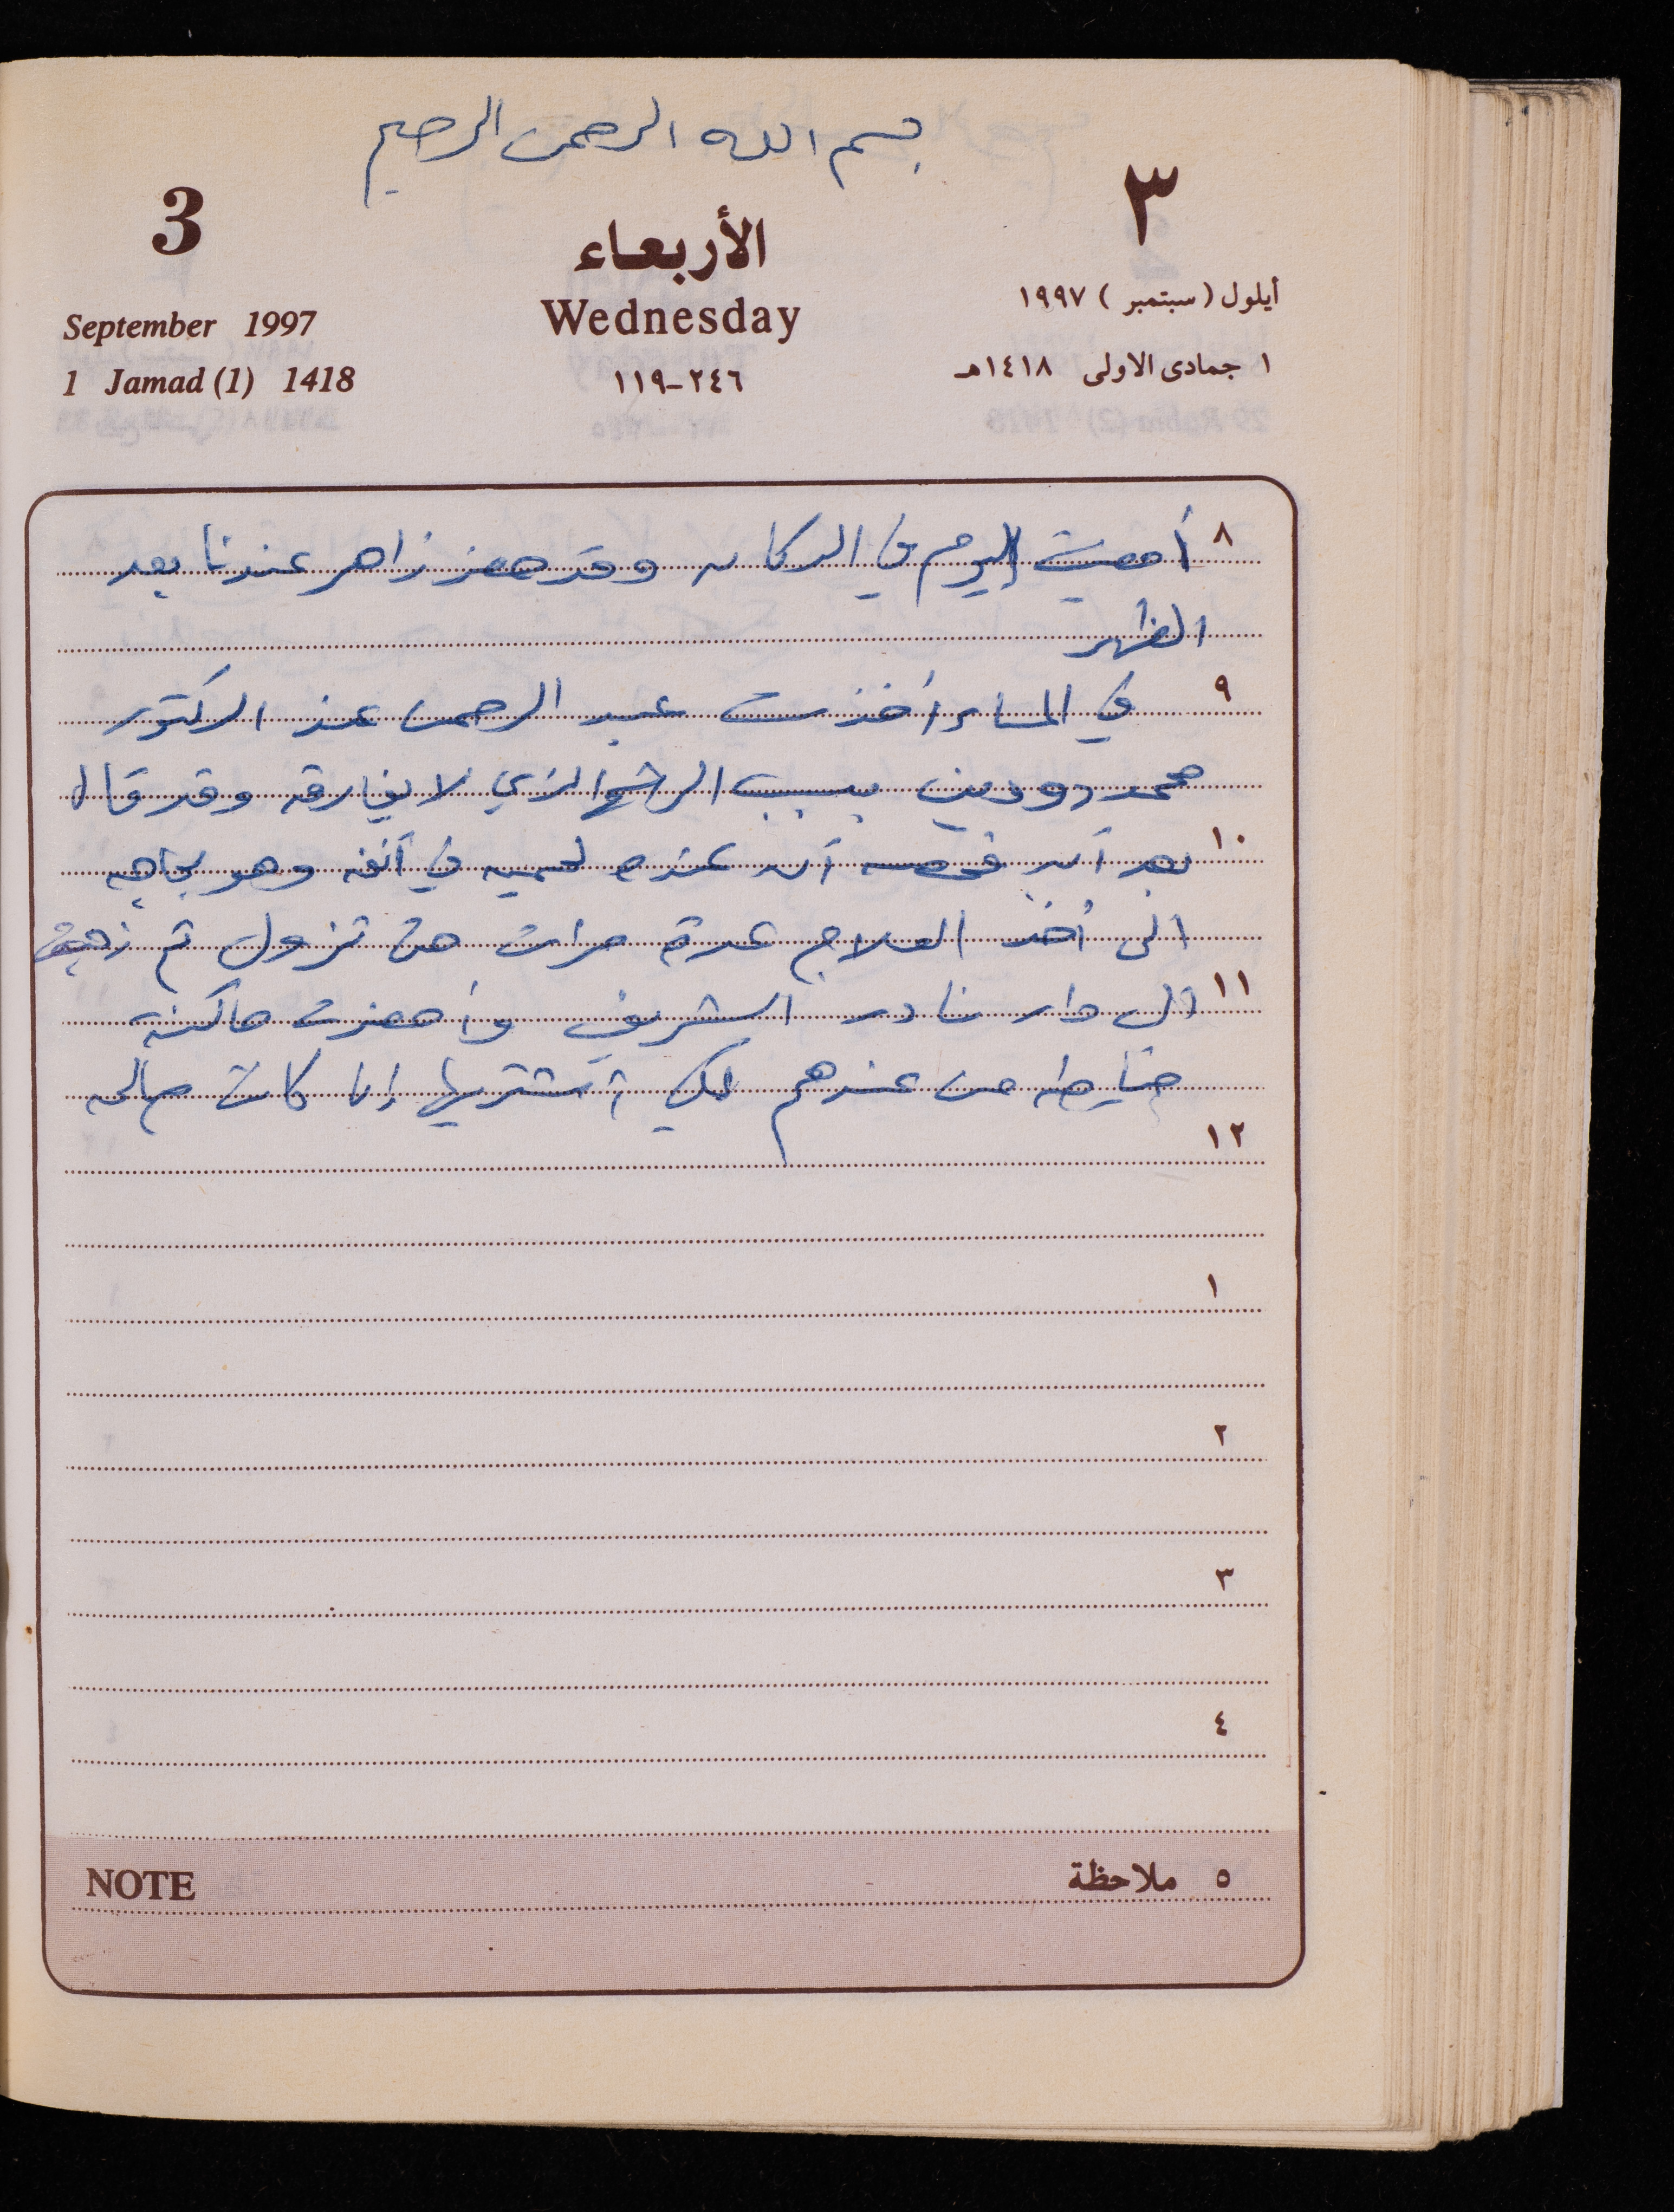 بسم الله الرحمن الرحيم
3
الأربعاء
٣
September 1997
Wednesday
أيلول (سبتمبر) ١٩٩٧
1 Jamad (1) 1418
٢٤٦-١١٩
١ جمادى الاولى ١٤١٨هـ
٨ أمضيت اليوم في الدكان وقد حضر زاهر عندنا بعد
الظهر
٩ في المساء أخذت عبد الرحمن عند الدكتور
محمد دودين بسبب الرشح الذي لا يفارقه وقد قال
١٠ بعد أن فحصه أن عنده لحميه في أنفه وهو بحاجه
الى أخذ العلاج عدة مرات حتى تزول ثم ذهبت
١١ الى دار نادر الشريف وأحضرت ماكنة
خياطه من عندهم لكي أشتريها إن كانت صالحه
١٢
١
٢
٣
٤
NOTE
٥ ملاحظة